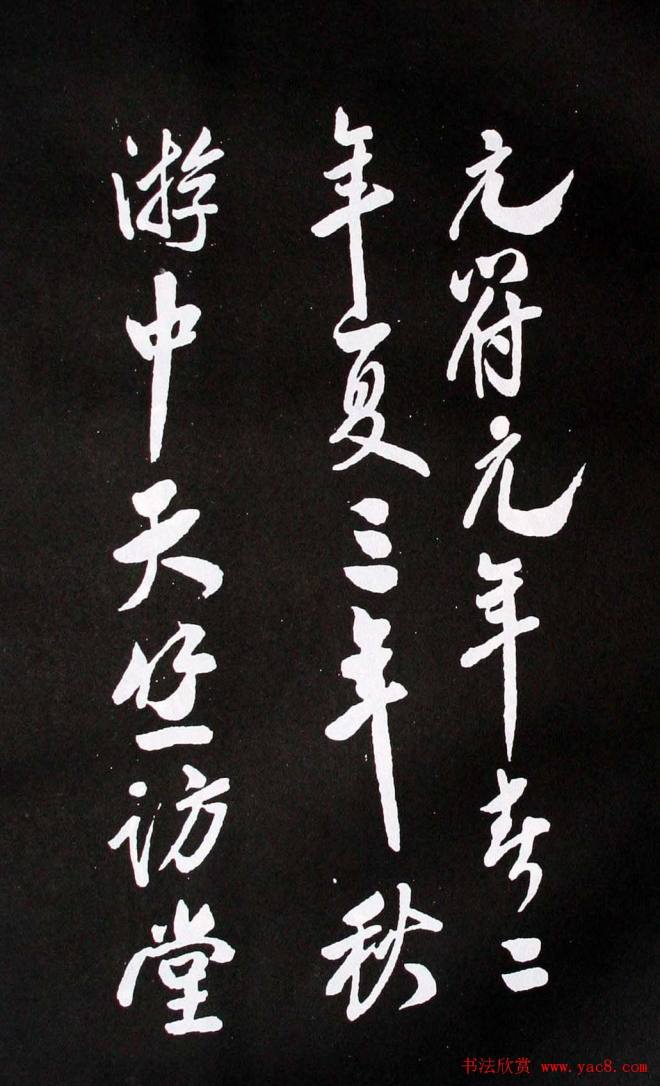 元符元年春二
年夏三年秋
游中天竺訪堂
书法欣赏 www.yac8.com